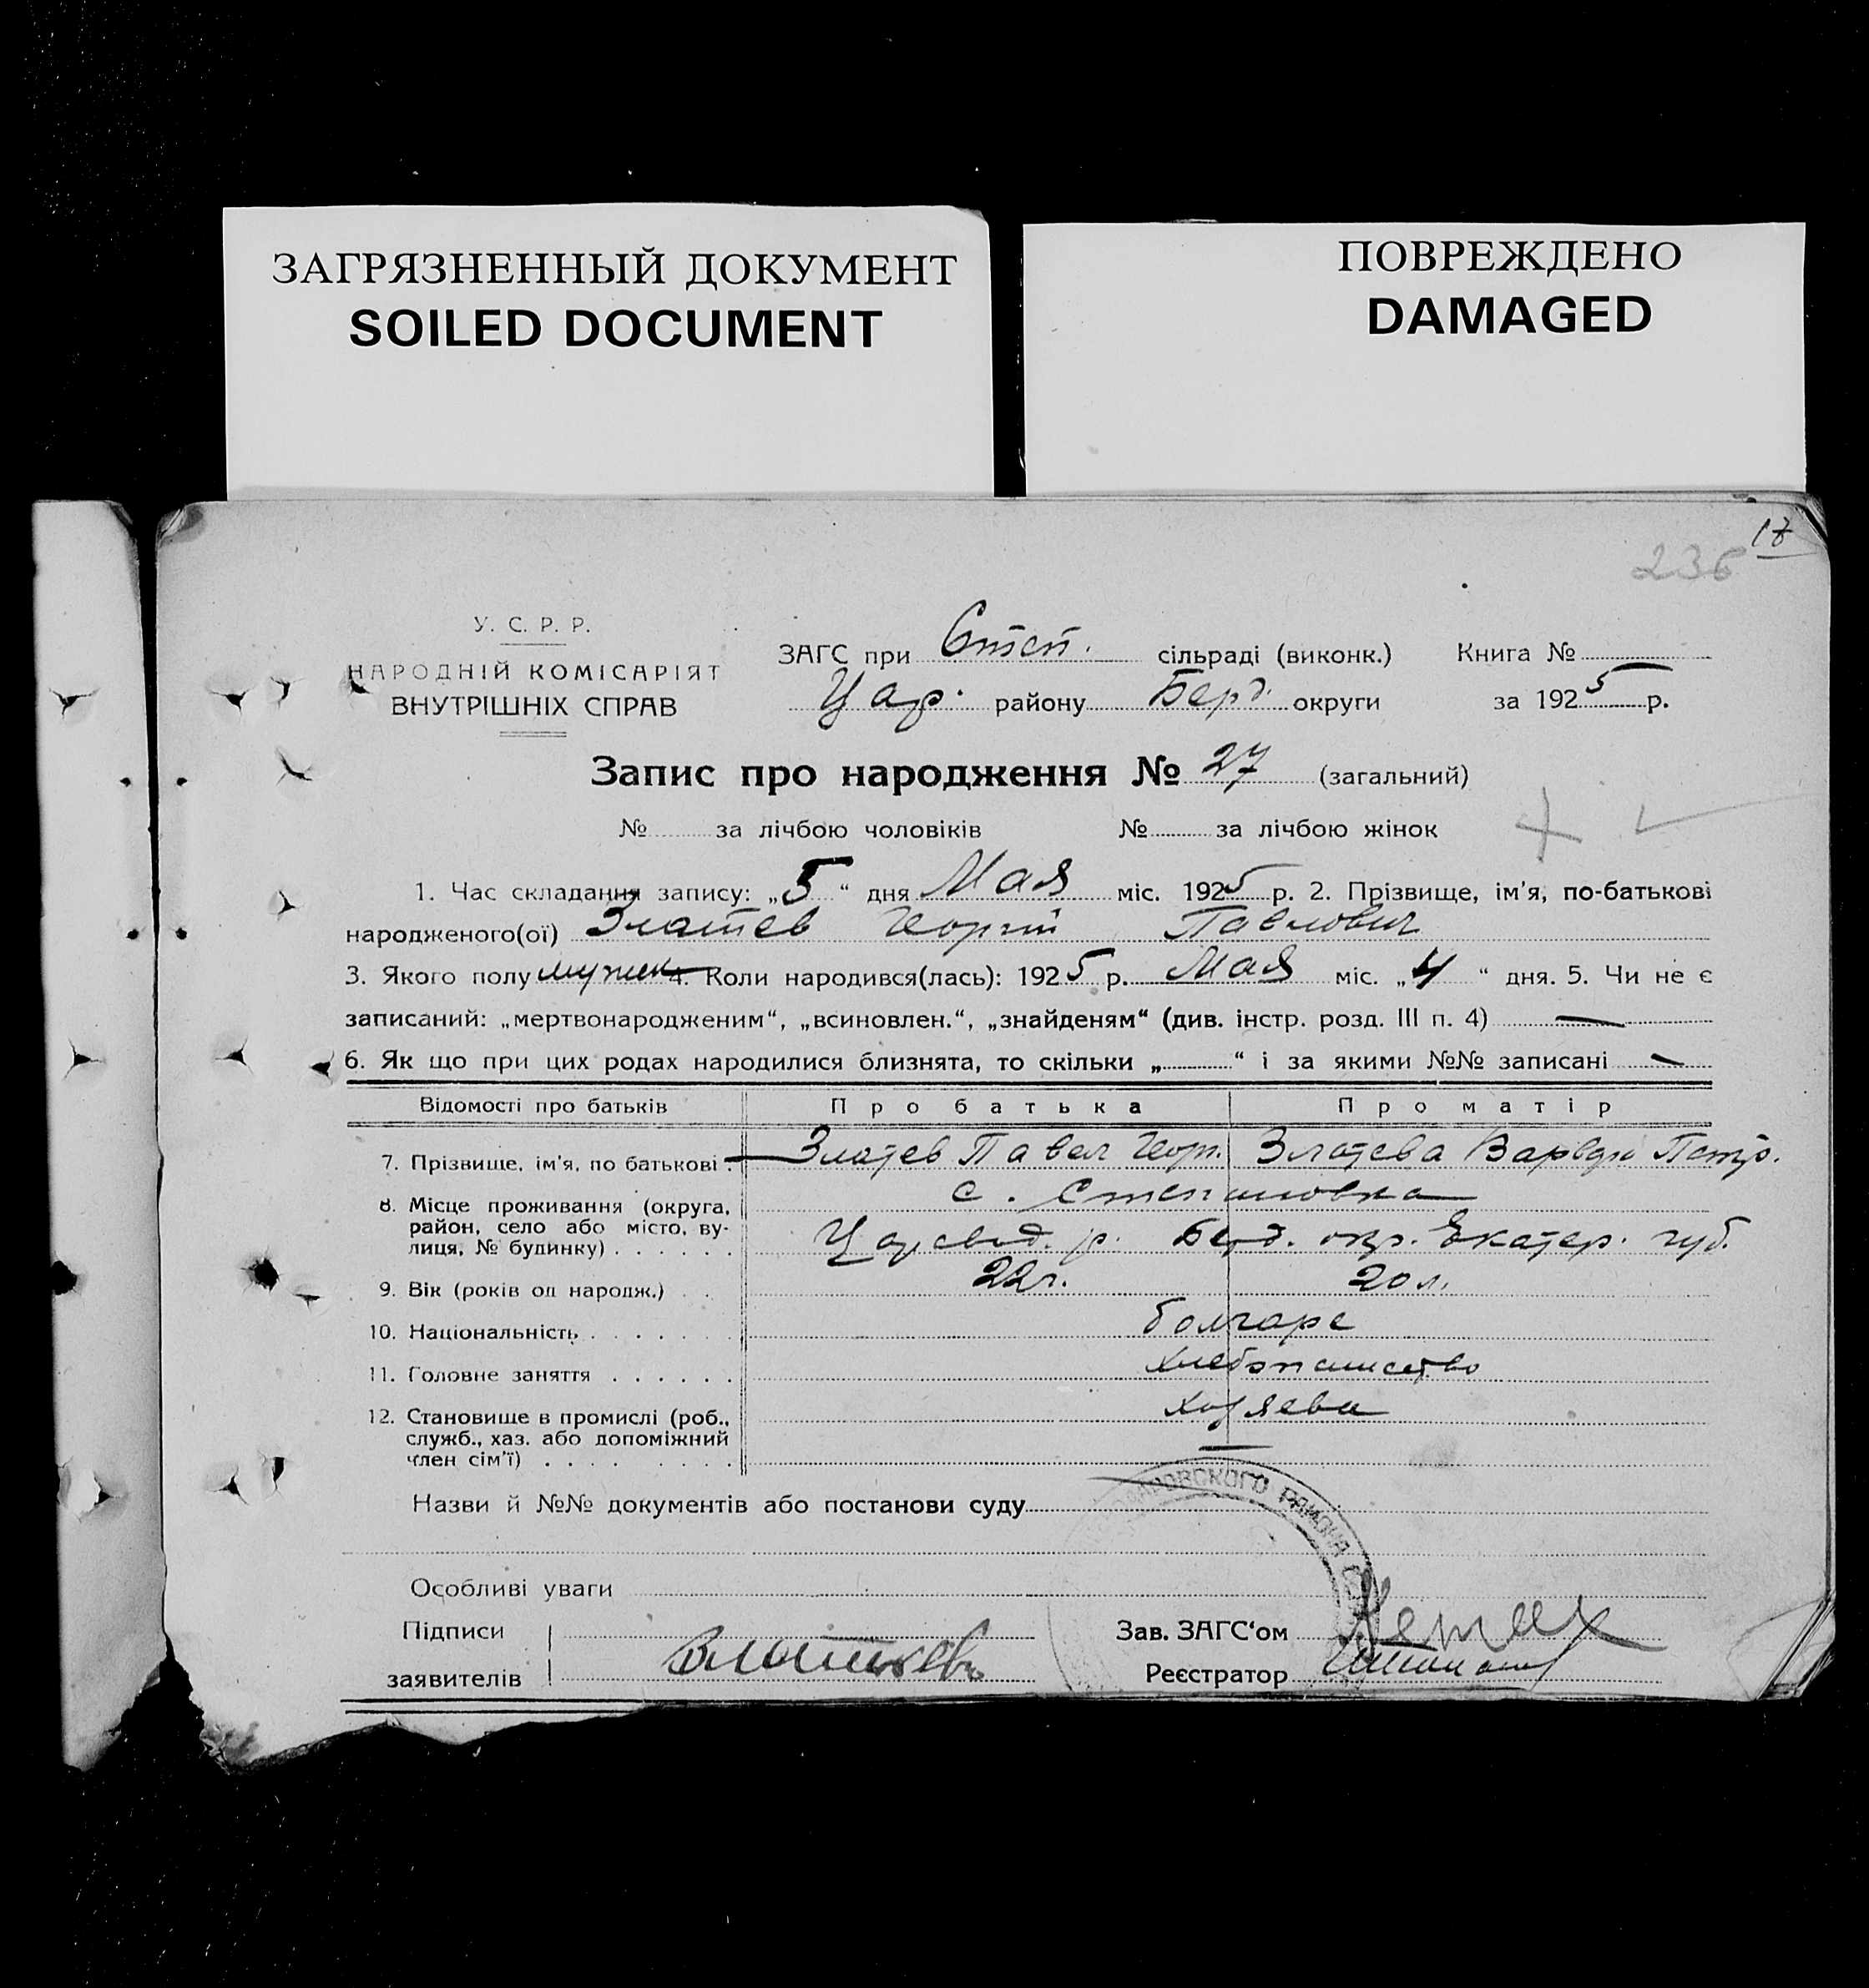 ЗАГРЯЗНЕННЫЙ ДОКУМЕНТ
SOILED DOCUMENT
ПОВРЕЖДЕНО
DAMAGED
17
236
У. С. Р. Р.
НАРОДНІЙ КОМІСАРІЯТ
ВНУТРІШНІХ СПРАВ
ЗАГС при Степ. сільраді (виконк.) Книга №
Цар. району Берд. округи за 1925 р.
Запис про народження № 27 (загальний)
№ за лічбою чоловіків № за лічбою жінок
1. Час складання запису: „5“ дня Мая міс. 1925 р. 2. Прізвище, ім'я, по-батькові
народженого(ої) Златев Георгій Павлович
3. Якого полу мужск 4. Коли народився(лась): 1925 р. Мая міс. „4“ дня. 5. Чи не є
записаний: „мертвонародженим“, „всиновлен.“, „знайденям“ (див. інстр. розд. III п. 4) —
6. Як що при цих родах народилися близнята, то скільки „ “ і за якими №№ записані —
Відомості про батьків Про батька Про матір
7. Прізвище, ім'я, по батькові . Златев Павел Геор. Златева Варвара Петр.
8. Місце проживання (округа, с. Степановка
район, село або місто, ву-
лиця, № будинку) . . . . . . Царевод. р. Берд. окр. Екатер. губ.
9. Вік (років од народж.) . . 22 г. 20 л.
10. Національність . . . . . . . болгаре
11. Головне заняття . . . . . . хлебопашество
12. Становище в промислі (роб., хозяева
служб., хаз. або допоміжний
член сім'ї) . . . . . . . .
Назви й №№ документів або постанови суду
ОВСКОГО РАЙОНА
Особливі уваги
Підписи
заявителів
Зав. ЗАГС'ом
Реєстратор